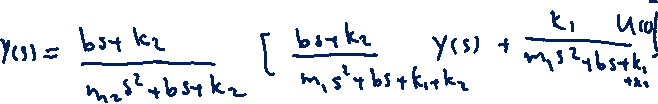 Y(s) = \frac{bs+k_2}{m_2s^2+bs+k_2} [ \frac{bs+k_2}{m_1s^2+bs+k_1+k_2} Y(s) + \frac{k_1}{m_1s^2+bs+k_1+k_2} U(s) ]